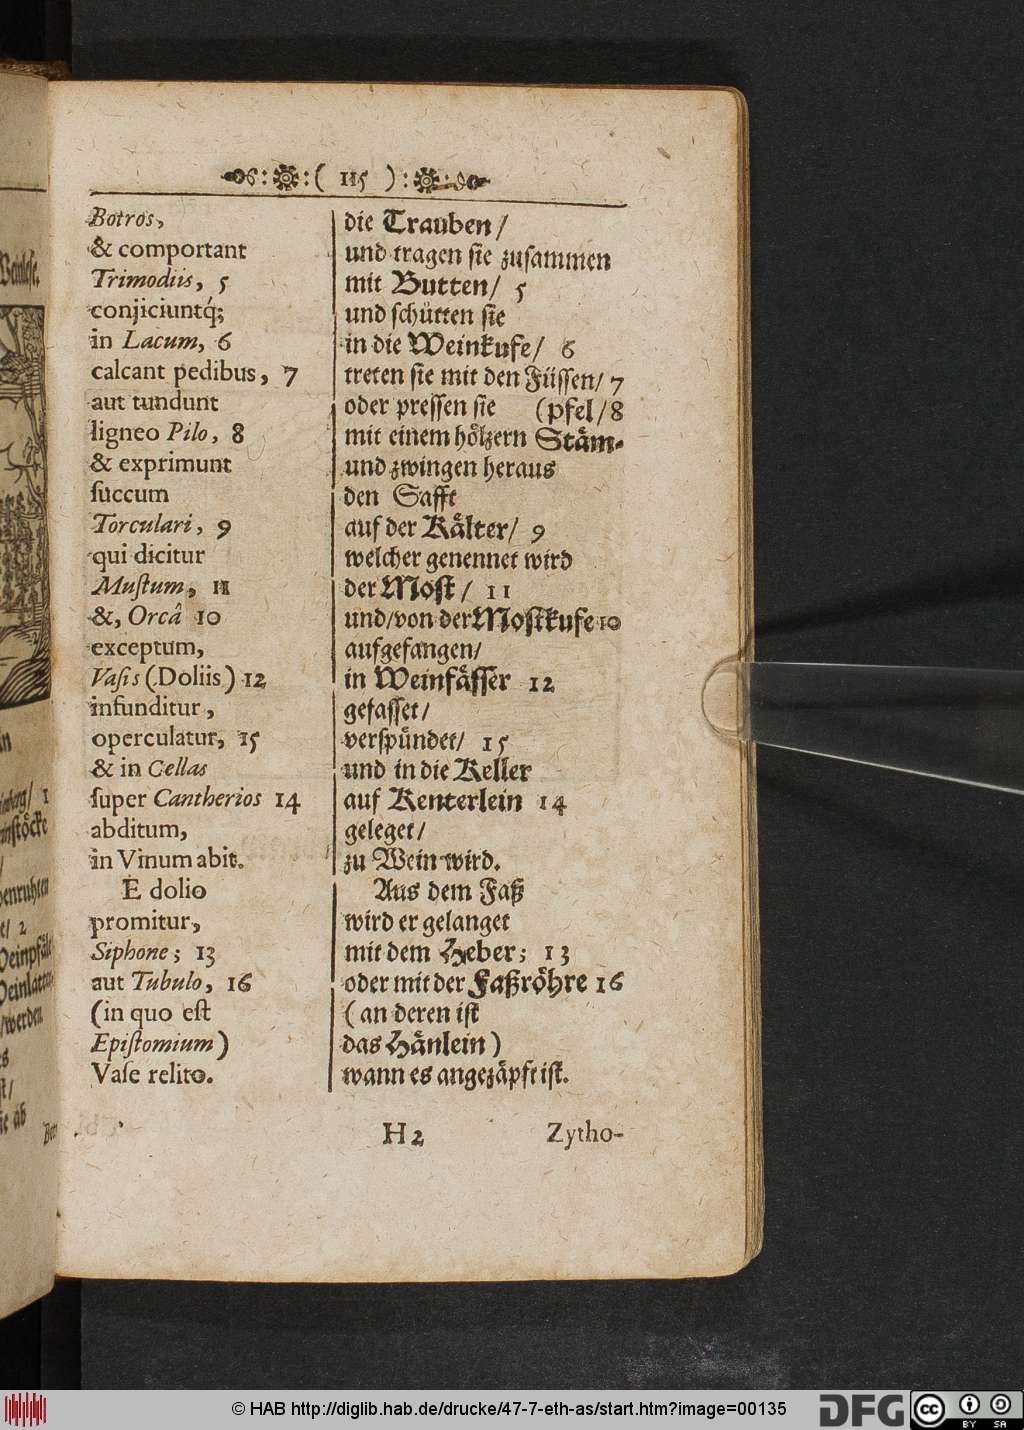 ( 115 )
Botros,
& comportant
Trimodiis, 5
conjiciuntq́;
in Lacum, 6
calcant pedibus, 7
aut tundunt
ligneo Pilo, 8
& exprimunt
ſuccum
Torculari, 9
qui dicitur
Muſtum, 11
&, Orcâ 10
exceptum,
Vaſis (Doliis) 12
infunditur,
operculatur, 15
& in Cellas
ſuper Cantherios 14
abditum,
in Vinum abit.
E dolio
promitur,
Siphone; 13
aut Tubulo, 16
(in quo eſt
Epiſtomium)
Vaſe relito.
die Trauben/
und tragen ſie zuſammen
mit Butten/ 5
und ſchütten ſie
in die Weinkufe/ 6
treten ſie mit den Füſſen/ 7
oder preſſen ſie (pfel/ 8
mit einem hoͤlzern Staͤm-
und zwingen heraus
den Safft
auf der Kaͤlter/ 9
welcher genennet wird
der Moſt/ 11
und/von der Moſtkufe 10
aufgefangen/
in Weinfaͤſſer 12
gefaſſet/
verſpündet/ 15
und in die Keller
auf Kenterlein 14
geleget/
zu Wein wird.
Aus dem Faß
wird er gelanget
mit dem Heber; 13
oder mit der Faßroͤhre 16
(an deren iſt
das Haͤnlein)
wann es angezaͤpft iſt.
H 2
Zytho-
© HAB http://diglib.hab.de/drucke/47-7-eth-as/start.htm?image=00135
DFG
cc
BY SA